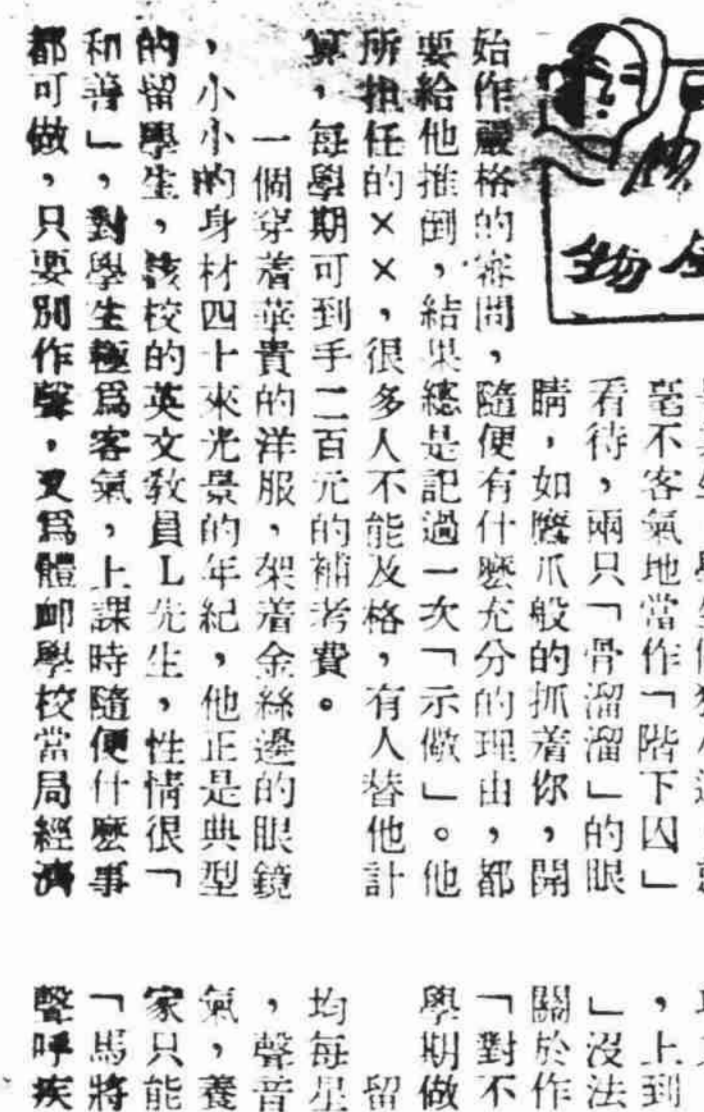 毫不客氣地當作「階下囚」
看待，兩只「骨溜溜」的眼
睛，如鷹爪般的抓着你，開
始作嚴格的審問，隨便有什麼充分的理由，都
要給他推倒，結果總是記過一次「示儆」。他
所担任的××，很多人不能及格，有人替他計
算，每學期可到手二百元的補考費。
一個穿着華貴的洋服，架着金絲邊的眼鏡
，小小的身材四十來光景的年紀，他正是典型
的留學生，該校的英文敎員L先生，性情很「
和善」，對學生極爲客氣，上課時隨便什麼事
都可做，只要別作聲，又爲體卹學校當局經濟
，上到
」沒法
關於作
「對不
學期做
留
均每星
，聲音
氣，養
家只能
「馬將
聲呼疾